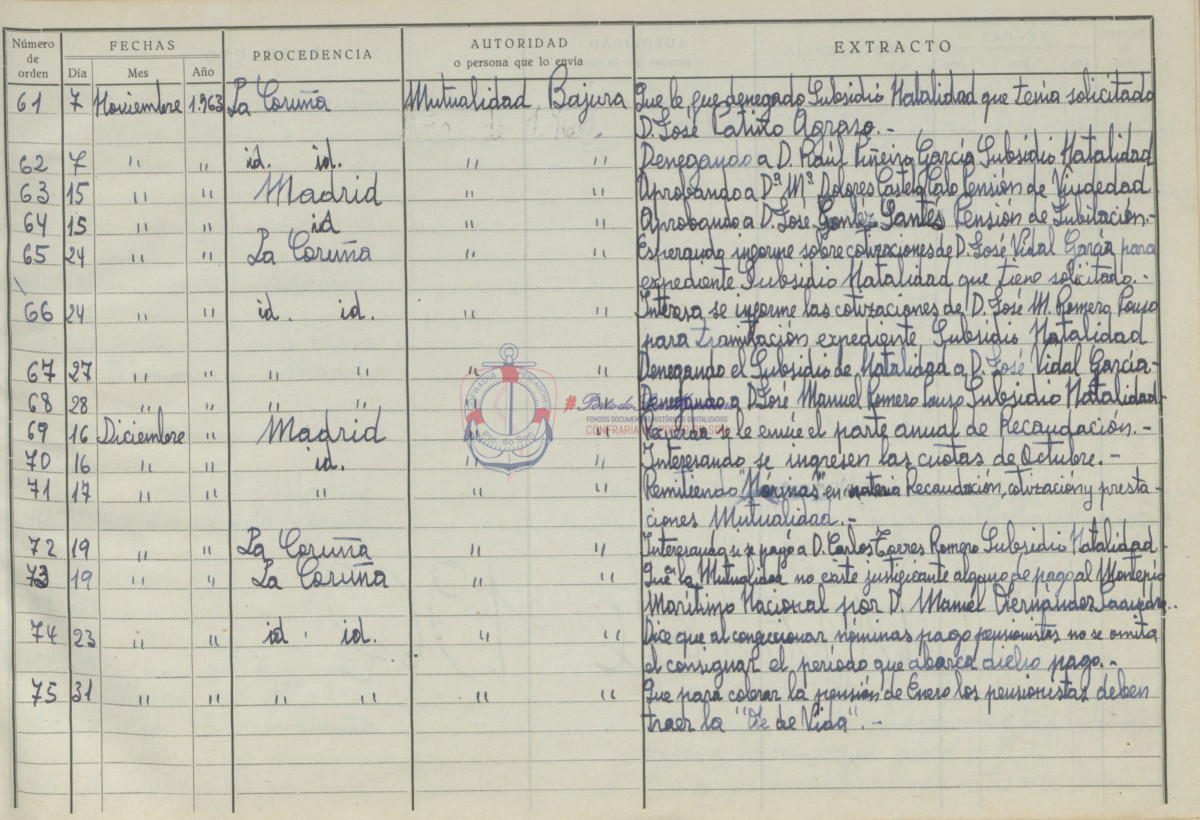 Número de orden FECHAS PROCEDENCIA AUTORIDAD o persona que lo envía EXTRACTO
Día Mes Año
61 7 Noviembre 1.963 La Coruña Mutualidad Bajura Que le fue denegado Subsidio Natalidad que tenia solicitado
D. José Patiño Agraso.-
62 7 " " id. id. " " Denegando a D. Raúl Piñeiro García Subsidio Natalidad
63 15 " " Madrid " " Aprobando a Dª. Mª. Dolores Castelo Calo Pensión de Viudedad
64 15 " " id " " Aprobando a D. José Santés Pensión de Jubilación.-
65 24 " " La Coruña " " Esperando informe sobre cotizaciones de D. José Vidal García para
expediente Subsidio Natalidad que tiene solicitado.-
66 24 " " id. id. " " Interesa se informe las cotizaciones de D. José M. Romero Pouso
para tramitación expediente Subsidio Natalidad
67 27 " " " " " " Denegando el Subsidio de Natalidad a D. José Vidal García-
68 28 " " " " " " Denegando a D. José Manuel Romero Pouso Subsidio Natalidad
69 16 Diciembre " Madrid " " se le envíe el parte anual de Recaudación.-
70 16 " " id. " " Interesando se ingresen las cuotas de Octubre.-
71 17 " " " " " Remitiendo "Normas" en materia Recaudación, cotización y presta-
ciones Mutualidad.-
72 19 " " La Coruña " " Interesando si se pagó a D. Carlos Torres Romero Subsidio Natalidad
73 19 " " La Coruña " " Que en la Mutualidad no existe justificante alguno de pago al Montepío
Marítimo Nacional por D. Manuel Fernández
74 23 " " id. id. " " Dice que al confeccionar nóminas pago pensionistas no se omita
el consignar el período que abarca dicho pago.-
75 31 " " " " " " Que para cobrar la pensión de Enero los pensionistas deben
traer la "Fe de Vida".-